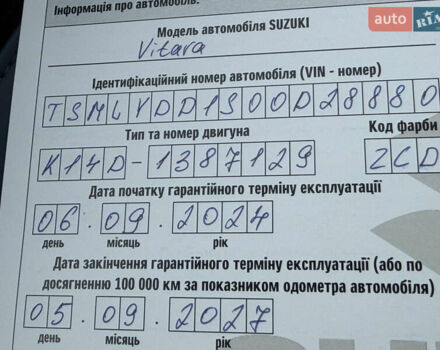 Інформація про автомобіль:
auto RIA
Модель автомобіля SUZUKI
Vitara
Ідентифікаційний номер автомобіля (VIN - номер)
TSMLYDD1S00D28880
Тип та номер двигуна
Код фарби
K14D-1387129
ZCD
Дата початку гарантійного терміну експлуатації
06.09.2024
день місяць рік
Дата закінчення гарантійного терміну експлуатації (або по
досягненню 100 000 км за показником одометра автомобіля)
05.09.2027
день місяць рік